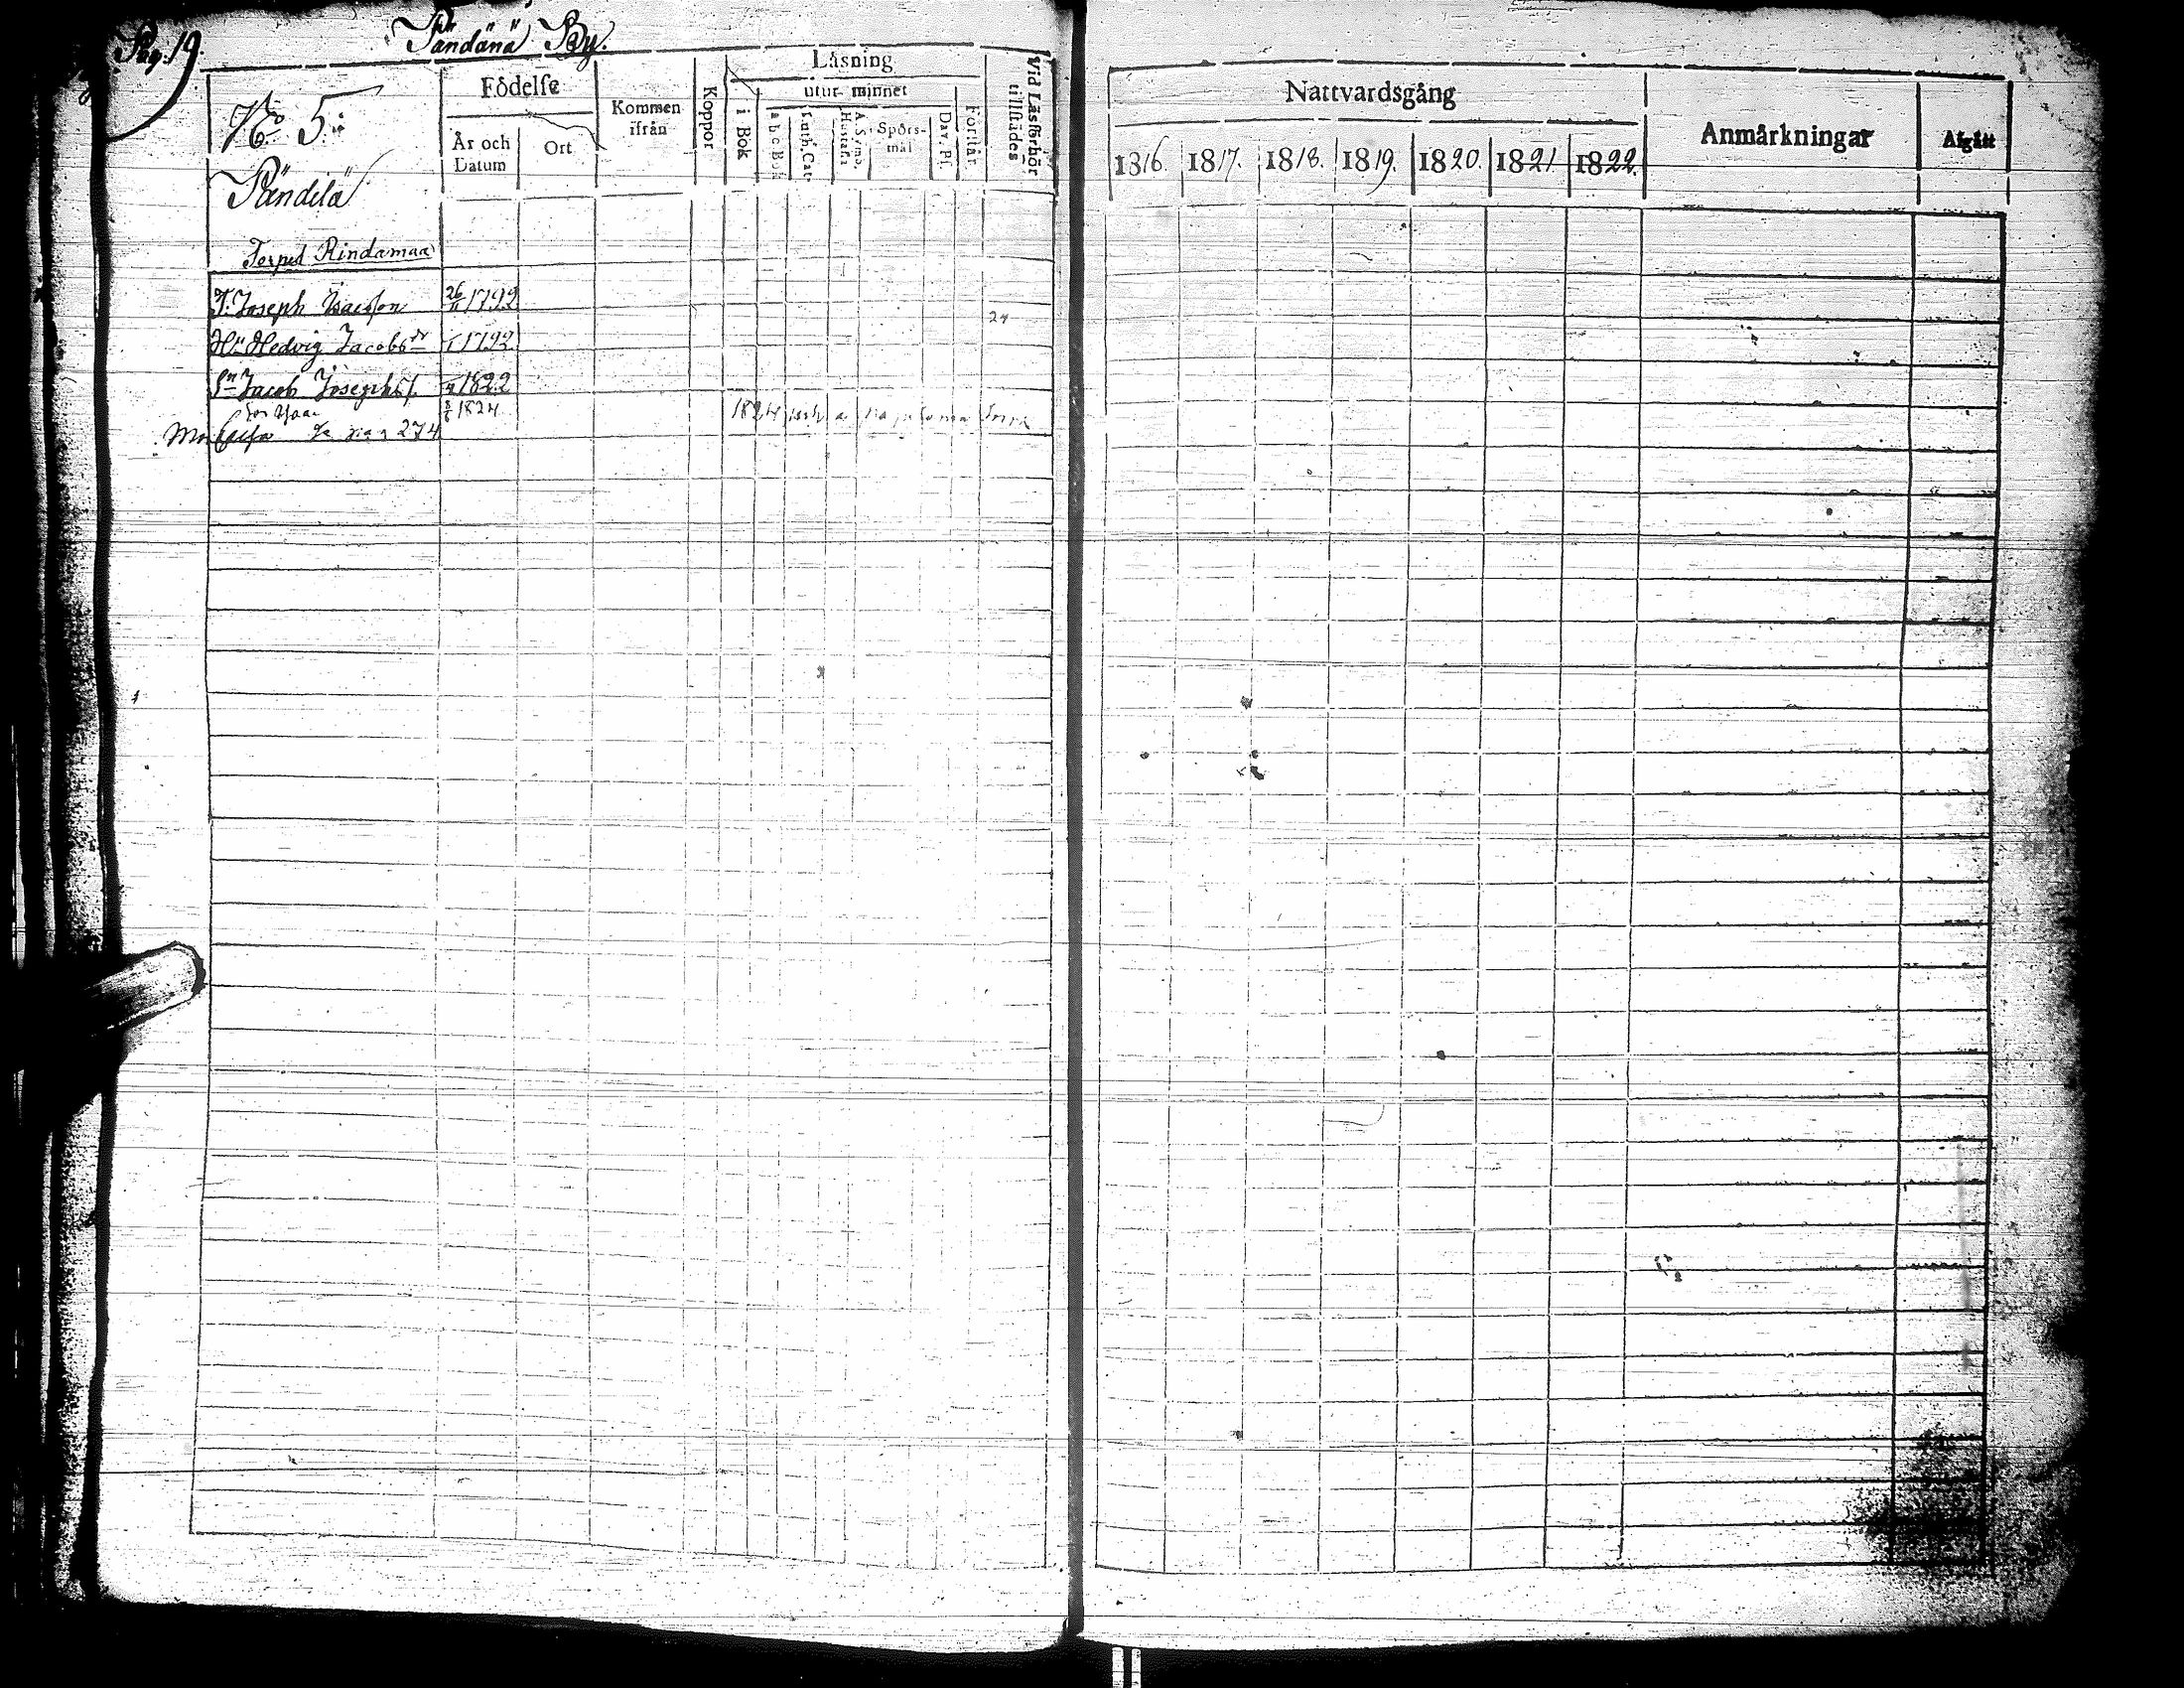 Pag. 19.
Pändänä By.
No 5.
Pändilä
Födelse
År och Datum
Ort
Kommen ifrån
Koppor
Läsning
i Bok
utur minnet
a b c Bok
Luth. Cat.
A. Symb.
Hustafla
Spörs-mål
Dav. Ps.
Förstår
Vid Läsförhör tillstädes
Nattvardsgång
1816. 1817. 1818. 1819. 1820. 1821. 1822.
Anmärkningar
Afgått
Torpet Rindamaa
T. Joseph Isacsson 26/11 1792
24
Hu Hedvig Jacobsdr 1792
Sn Jacob Josephss. 1822
1824
1824
274